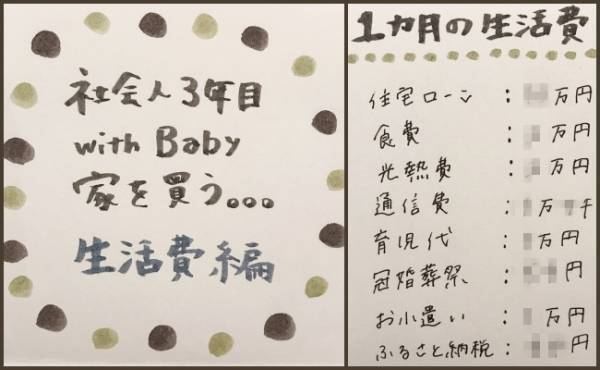 社会人3年目
with Baby
家を買う。。。
生活費編
1カ月の生活費
住宅ローン : 万円
食費 : 万円
光熱費 : 万円
通信費 : 万 千
育児代 : 万円
冠婚葬祭 : 円
お小遣い : 万円
ふるさと納税 : 円